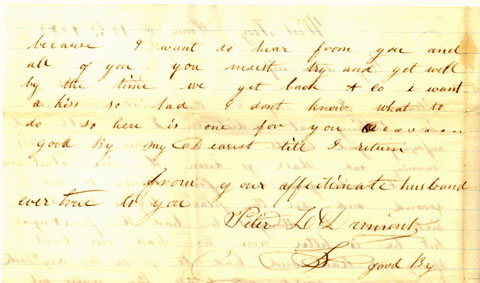 because I want to hear from you and
all of you you must try and get well
by the time we get back & Co I want
a kiss so bad I dont know what to
do so here is one for you
good By my Dearest till I return
from your affectionate husband
ever true to you
Peter L
good By